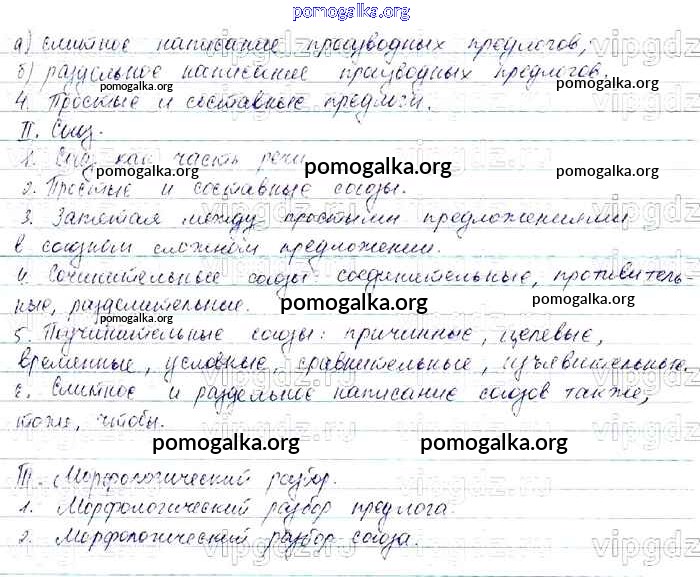 pomogalka.org
а) слитное написание производных предлогов;
б) раздельное написание производных предлогов.
pomogalka.org pomogalka.org
4. Простые и составные предлоги.
pomogalka.org
II. Союз.
1. Союз как часть речи
pomogalka.org
2. Простые и составные союзы.
pomogalka.org pomogalka.org
3. Запятая между простыми предложениями
в союзном сложном предложении.
4. Сочинительные союзы: соединительные, противитель-
ные, разделительные.
pomogalka.org pomogalka.org
5. Подчинительные союзы: причинные, целевые,
временные, условные, сравнительные, изъяснительные.
6. Слитное и раздельное написание союзов также,
тоже, чтобы.
pomogalka.org pomogalka.org
III. Морфологический разбор.
1. Морфологический разбор предлога.
2. Морфологический разбор союза.
vipgdz.ru